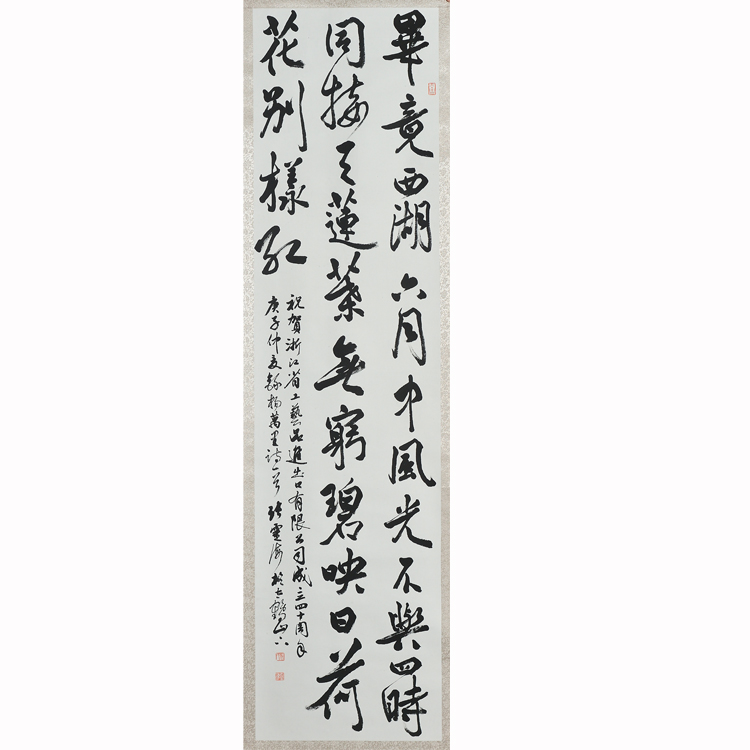 畢竟西湖六月中風光不與四時
同接天蓮葉無窮碧映日荷
花別樣紅
祝賀浙江省工藝品進出口有限公司成立四十周年
庚子仲夏錄楊萬里詩一首